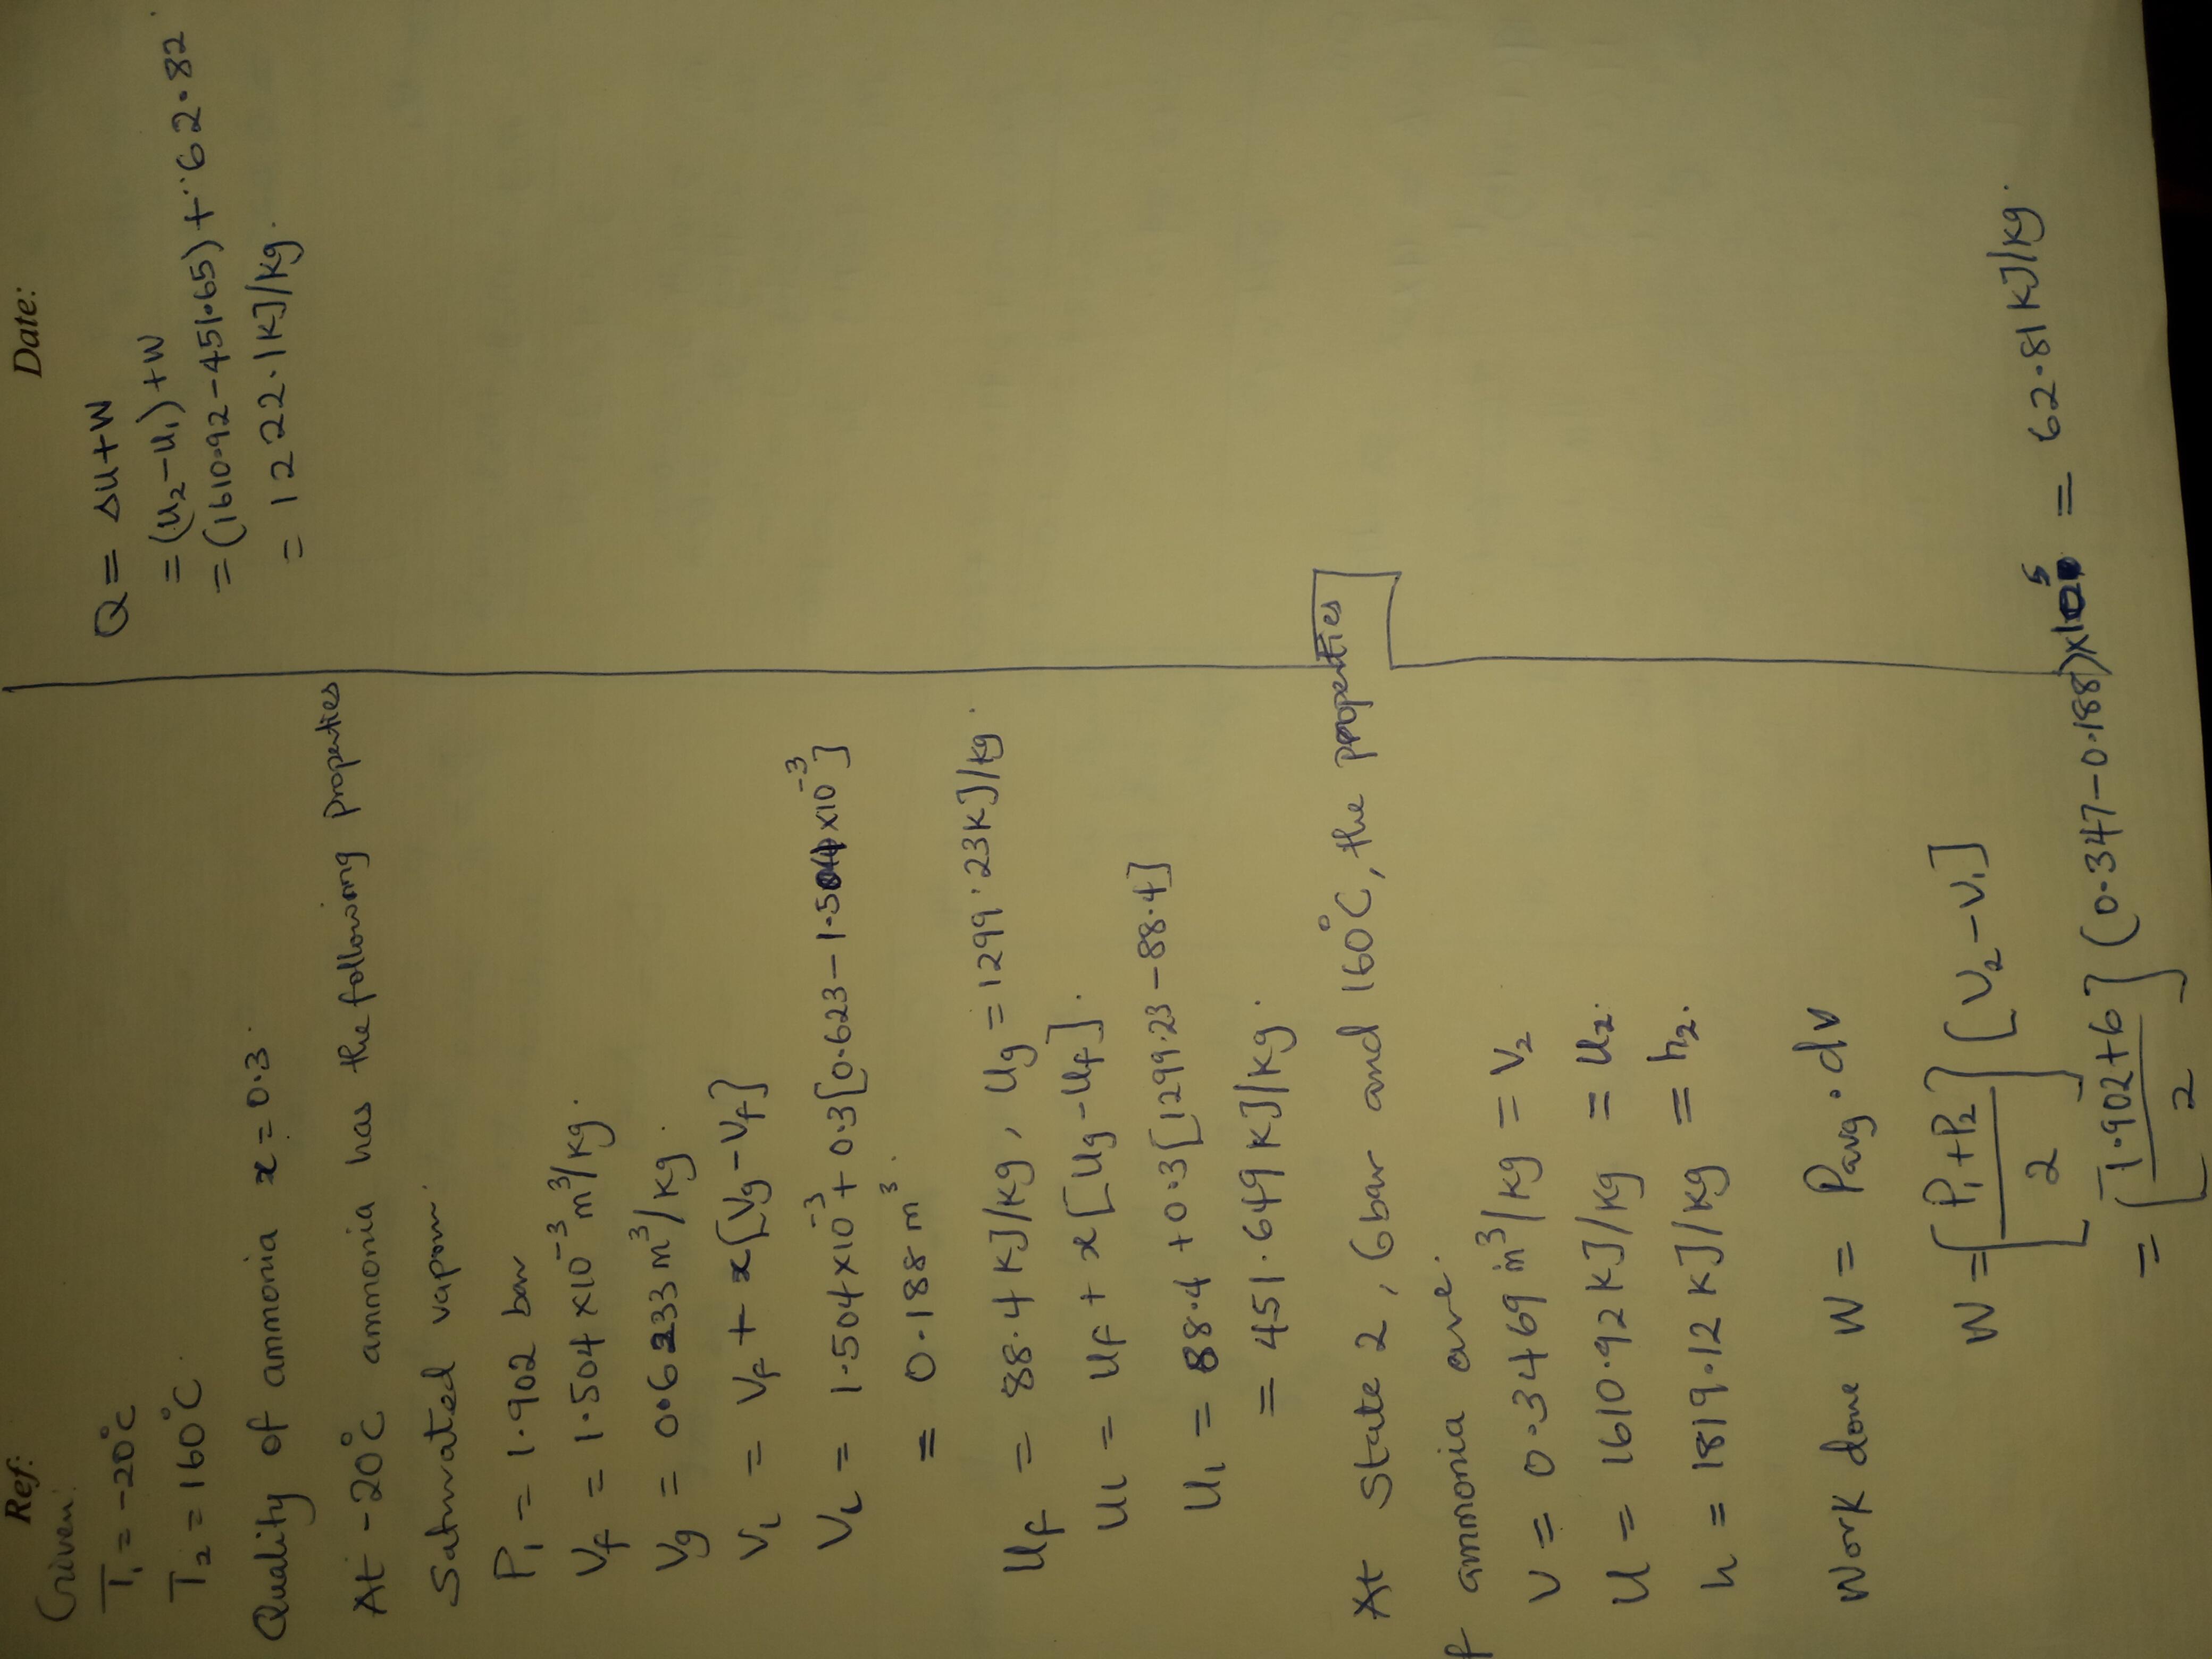 Ref:
Date:
Given:
T₁ = -20°C
T₂ = 160°C.
Quality of ammonia x = 0.3.
At -20°C ammonia has the following properties
Saturated vapour.
P₁ = 1.902 bar
Vf = 1.504 x10⁻³ m³/kg.
Vg = 0.6233 m³/kg.
V₁ = Vf + x[Vg-Vf]
V₁ = 1.504x10⁻³ + 0.3[0.623 - 1.504x10⁻³]
= 0.188 m³.
Uf = 88.4 KJ/kg, Ug = 1299.23KJ/kg.
U1 = Uf + x[Ug-Uf].
U₁ = 88.4 + 0.3[1299.23 - 88.4]
= 451.649 KJ/kg.
At State 2, 6bar and 160°C, the properties
f ammonia are.
V = 0.3469 m³/kg = V₂
U = 1610.92 KJ/kg = U₂.
h = 1819.12 KJ/kg = h₂.
Work done W = Pavg. dv
W = [P₁+P₂/2] [V₂-V₁]
= [1.902+6/2] (0.347-0.188)x10⁵ = 62.81 KJ/kg.
Q = ΔU+W
= (U₂-U₁)+W
= (1610.92-451.65)+62.82
= 1222.1KJ/kg.